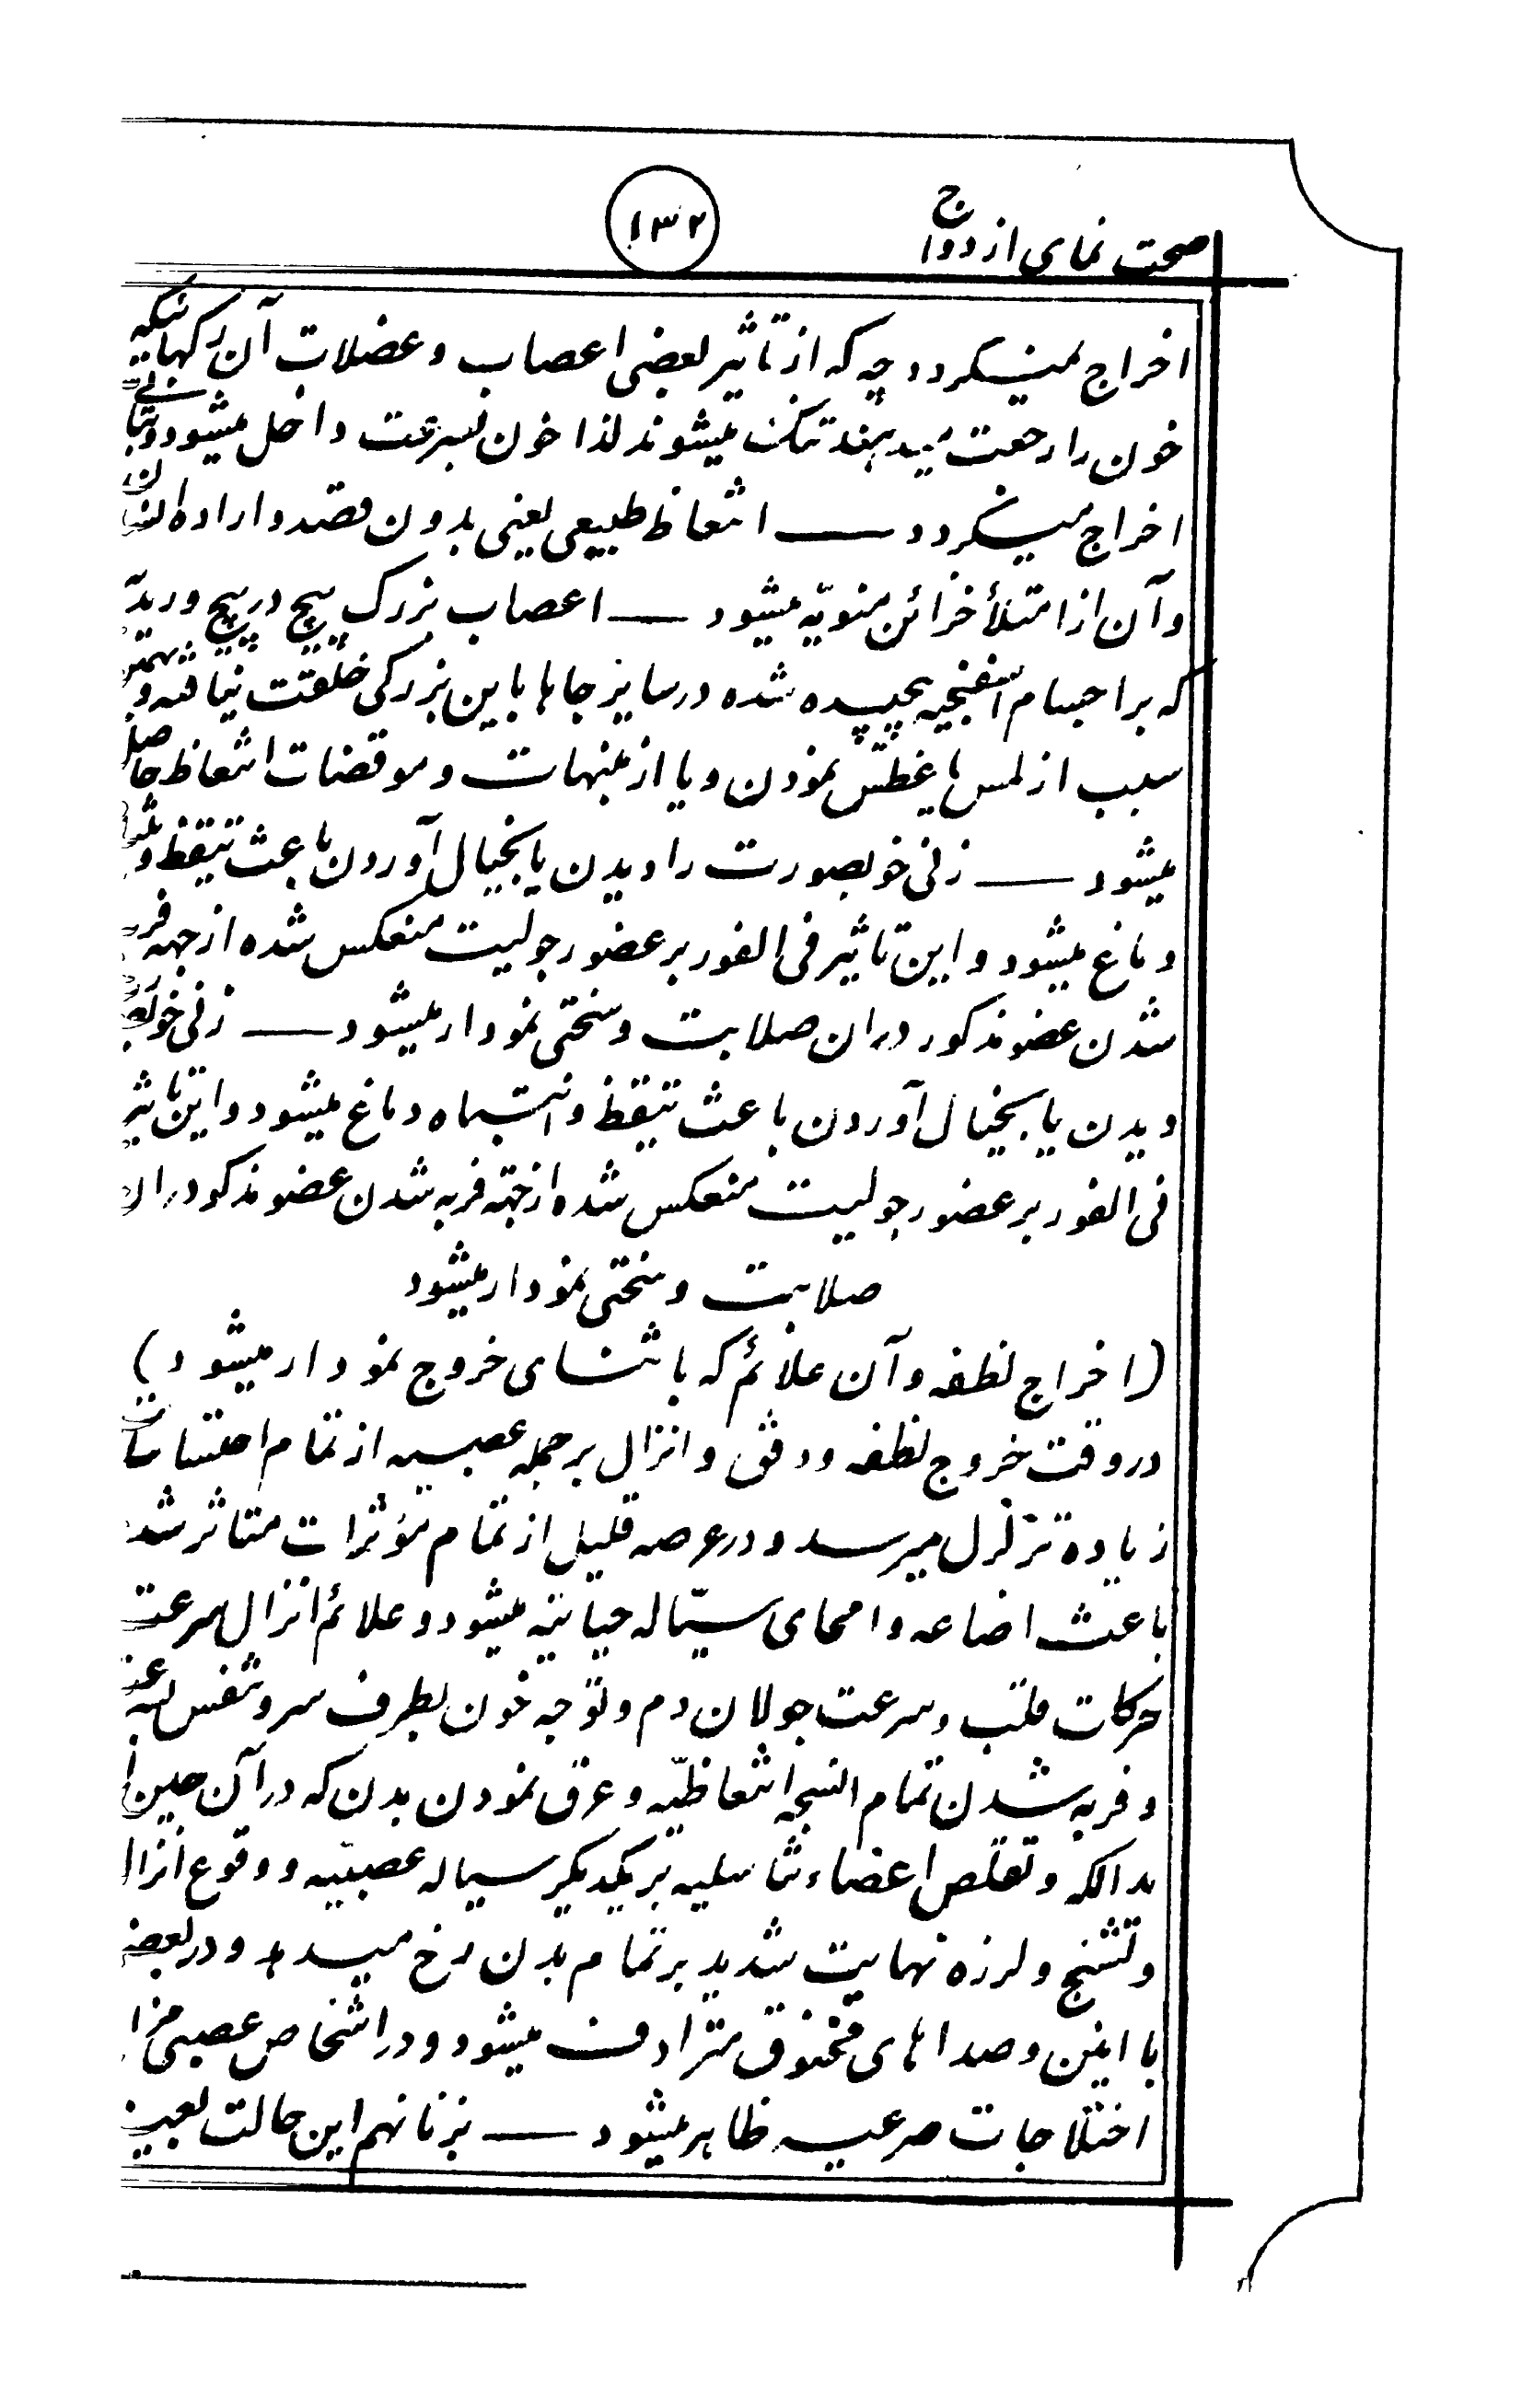 صحت نمای ازدواج
۱۳۲
اخراج نمیگردد چه که از تأثیر بعضی اعصاب و عضلات آن رگهائیکه
خون را رجعت میدهند تنگ میشوند لذا خون بسرعت داخل میشود و بتأنی
اخراج میگردد — انتعاظ طبیعی یعنی بدون قصد و اراده انسان
و آن از امتلأ خزائن منویّه میشود — اعصاب بزرگ پیچ در پیچ وریدیّ
که بر اجسام اسفنجیه پیچیده شده در سایر جاها باین بزرگی خلقت نیافته و بهمین
سبب از لمس یا غطّس نمودن و یا از منبهات و موقضات انتعاظ حاصل
میشود — زنی خوبصورت را دیدن یا بخیال آوردن باعث تیقظ و
دماغ میشود و این تأثیر فی الفور بر عضو رجولیت منعکس شده از جهه فر
شدن عضو مذکور در ان صلابت و سختی نمودار میشود — زنی خوبص
دیدن یا بخیال آوردن باعث تیقظ و انتباه دماغ میشود و این تأثیر
فی الفور بر عضو رجولیت منعکس شده از جهة فربه شدن عضو مذکور در ان
صلابت و سختی نمودار میشود
(اخراج نطفه و آن علائم که باثنای خروج نمودار میشود)
در وقت خروج نطفه و دفق و انزال بر جمله عصبیه از تمام احتساسات
زیاده تزلزل میرسد و در عرصه قلیل از تمام مؤثرات متاثر شد
باعث اضاعه و امحای سیّاله حیاتیه میشود و علائم انزال سرعت
حرکات قلب و سرعت جولان دم و توجه خون بطرف سر و تنفس بسرعت
و فربه شدن تمام انسجه انتعاظیّه و عرق نمودن بدن که در آن حین
بدالکه و تقلّص اعضاء تناسلیه بر یکدیگر سیاله عصبیّه و وقوع انزال
و تشنج و لرزه نهایت شدید بر تمام بدن رخ میدهد و در بعض
با انین و صداهای مخنوق مترادف میشود و در اشخاص عصبی مزا
اختلاجات صرعیه ظاهر میشود — بزنانهم این حالت بعین